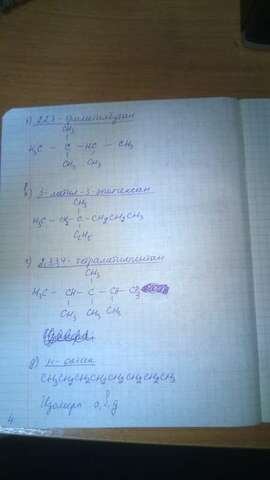 223-триметилбутан
CH₃
H₃C - C - HC - CH₃
CH₃ CH₃
3-метил-3-этилгексан
CH₃
H₃C - CH₂ - C - CH₂CH₂CH₃
C₂H₅
2,334-тетраметилпентан
CH₃
H₃C - CH - C - CH - CH₃
CH₃ CH₃ CH₃
д) н-октан
CH₃CH₂CH₂CH₂CH₂CH₂CH₂CH₃
Изомеры
4